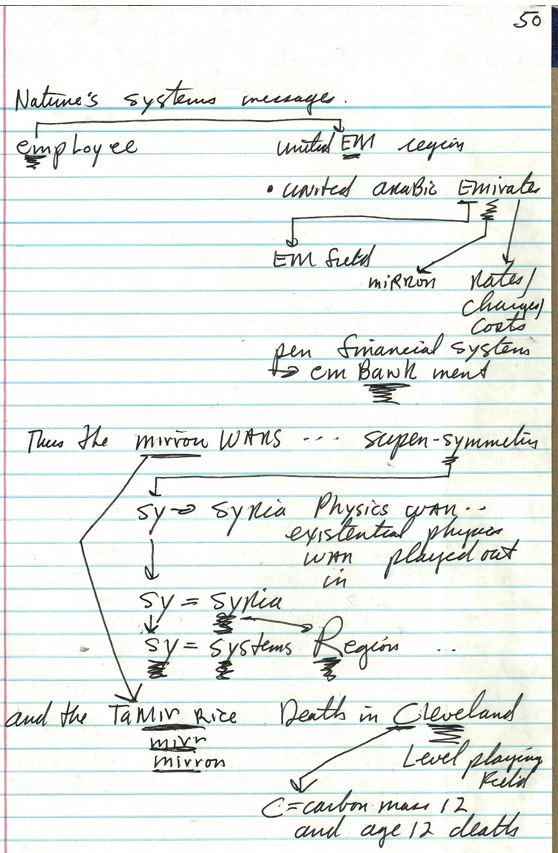 50
Nature's systems messages.
employee united EM region
• united arabic Emirates
EM field
mirror Rates/
charges/
costs
per financial system
em Bank ment
Thus the mirror WARS ... super-symmetric
Sy → Syria Physics war..
existential physics
war played out
in
Sy = Syria
Sy = systems Region ...
and the Tamir Rice Death in Cleveland
mirr
mirror
Level playing
field
C = carbon mass 12
and age 12 death